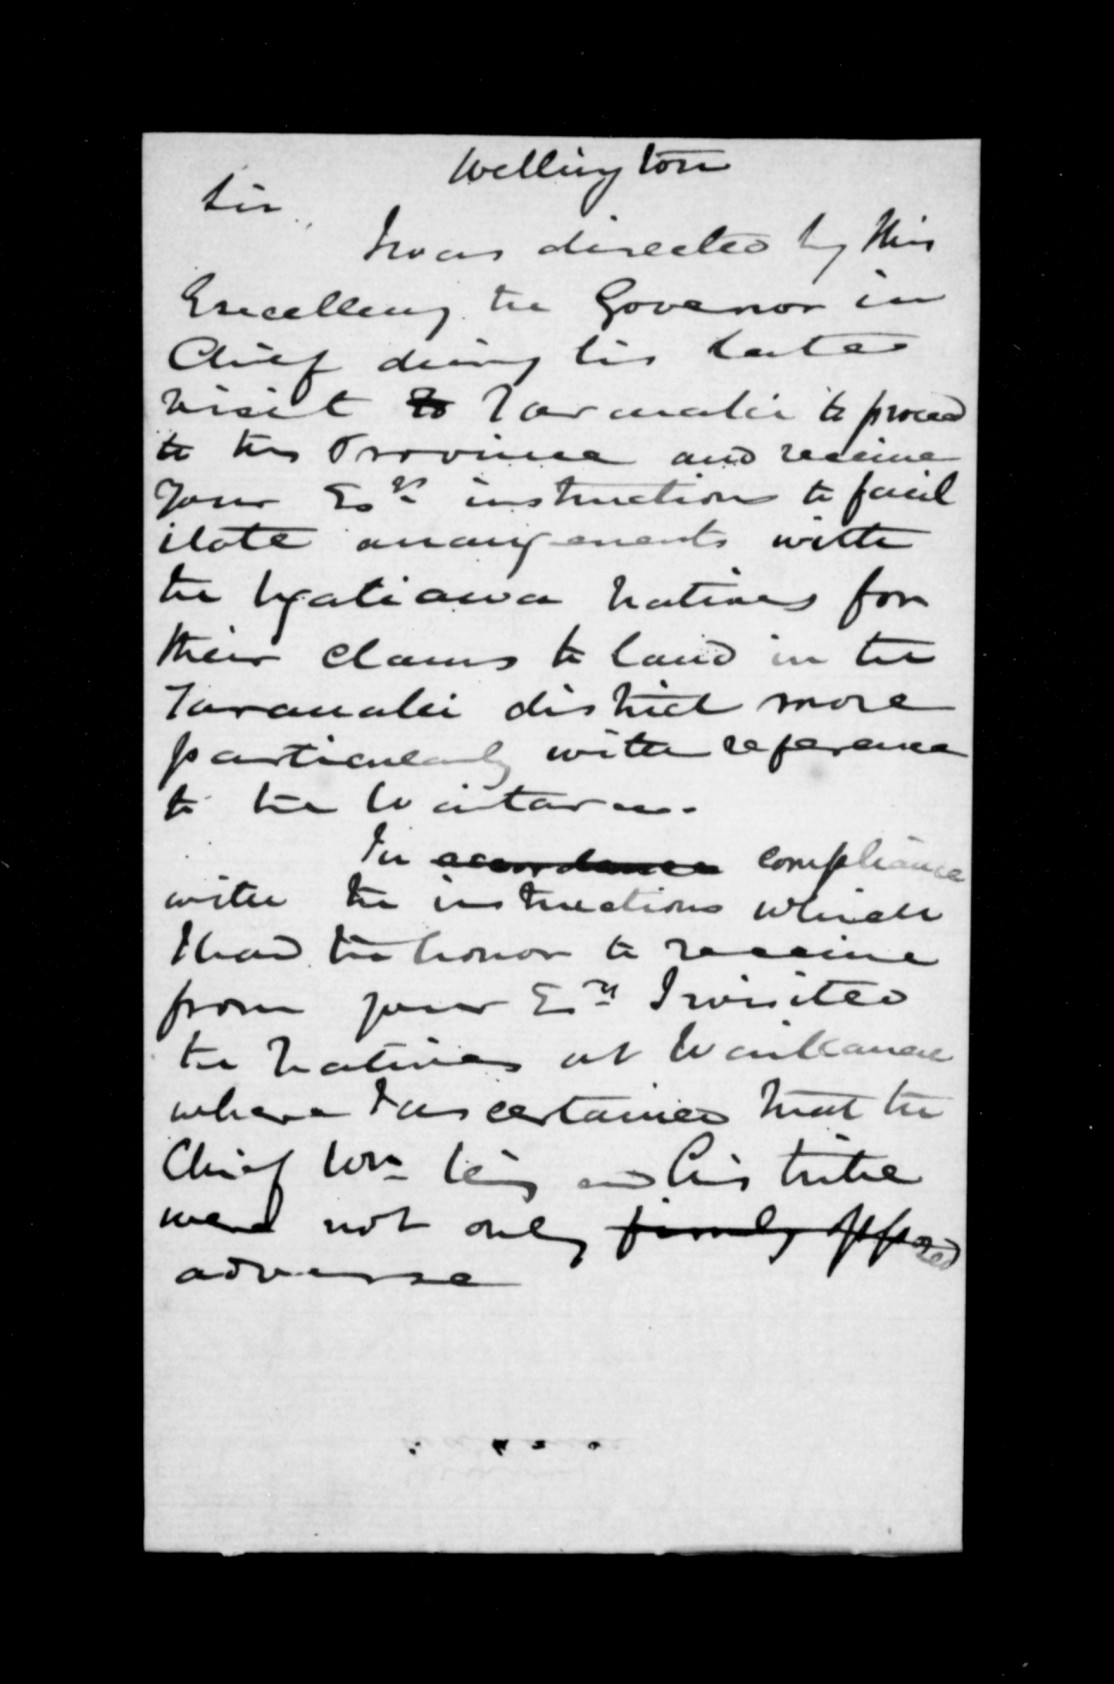 Wellington
Sir,
I was directed by His
Excellency the Governor in
Chief during his late
visit to Taranaki to proceed
to this Province and receive
Your Ex.cy instructions to facil
itate arrangements with
the Ngatiawa Natives for
their claims to land in the
Taranaki district more
particularly with reference
to the Waitara.
In accordance compliance
with the instructions which
I had the honor to receive
from your Ex.cy I visited
the Natives at Waikanae
where I ascertained that the
Chief Wm King and his tribe
were not only firmly opposed
adverse